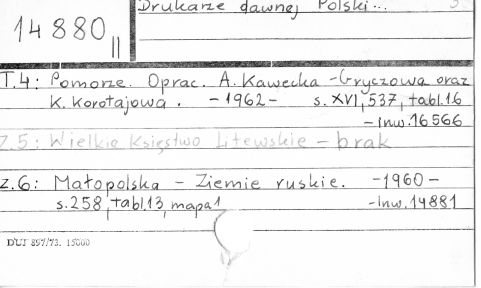 Drukarze dawnej Polski...
14880
II
T.4: Pomorze. Oprac. A. Kawecka-Gryczowa oraz
K. Korotajowa. -1962- s. XVI, 537, tabl.16
-Inw.16566
Z.5: Wielkie Księstwo Litewskie - brak
z.6: Małopolska - Ziemie ruskie. -1960-
s.258, tabl.13, mapa 1 -Inw.14881
DUI 897/73. 15000